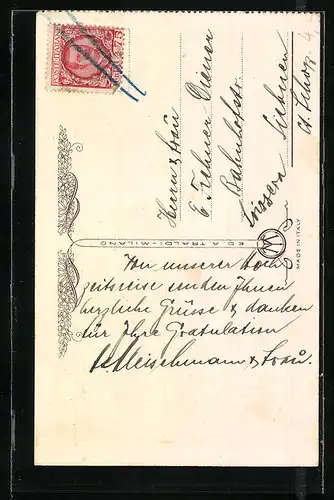 POSTE ITALIANE
75
Herrn & Frau
E. Diener
Bahnhofstr.
Siebnen
Kt. Schwyz
EDIZ. A. TRALDI - MILANO
MADE IN ITALY
Von unserer Hoch
zeitsreise senden Ihnen
herzliche Grüsse & danken
für Ihre Gratulation
Meischmann & Frau.